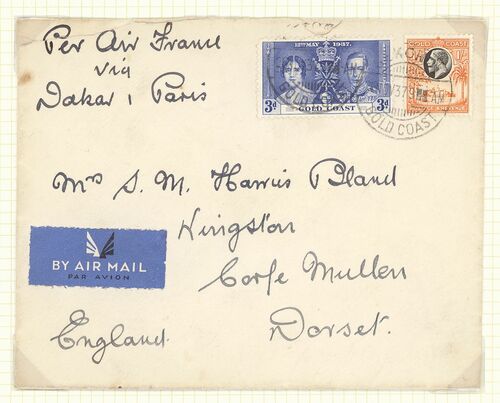 Per Air France
via
Dakar, Paris
12TH MAY 1937.
3d 3d
GOLD COAST
GOLD COAST
1/-
GOLD COAST
GOLD COAST
Mrs S. M. Harris Bland
Kingston
Corfe Mullen
Dorset.
England.
BY AIR MAIL
PAR AVION